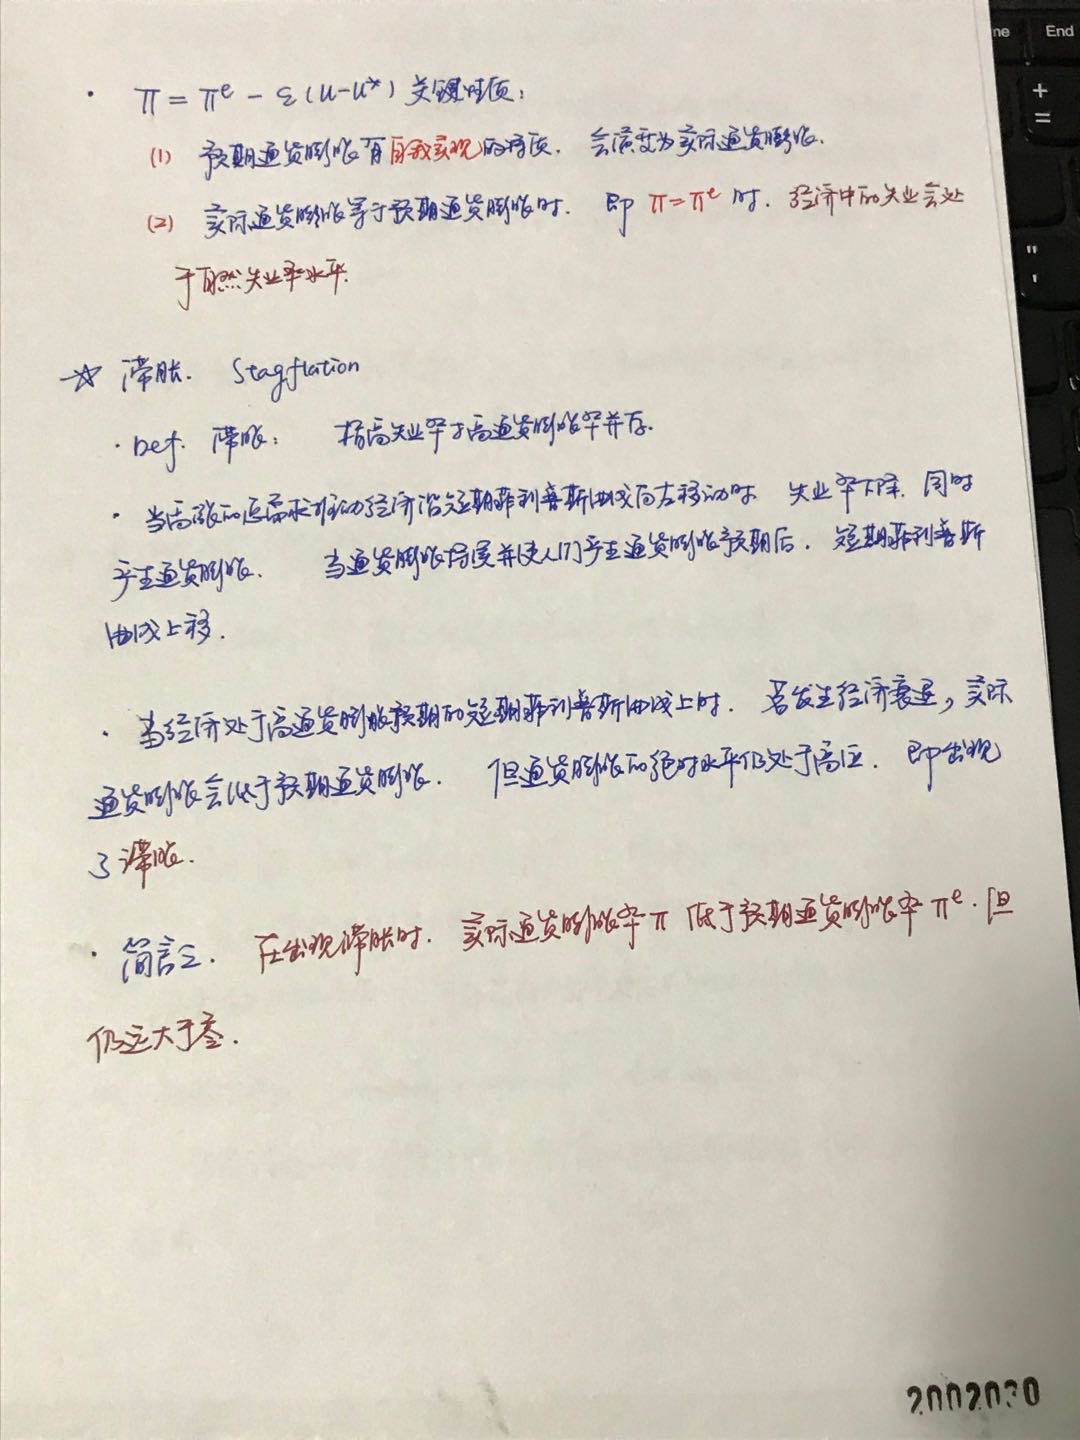 · π = πᵉ - ε(u-u*) 关键性质：
(1) 预期通货膨胀有自我实现的特质. 会演变为实际通货膨胀.
(2) 实际通货膨胀等于预期通货膨胀时. 即 π=πᵉ 时. 经济中的失业会处
于自然失业率水平.
☆ 滞胀. Stagflation
· Def. 滞胀： 指高失业率与高通货膨胀率并存.
· 当高涨的总需求推动经济沿短期菲利普斯曲线向左移动时 失业率下降. 同时
产生通货膨胀. 当通货膨胀持续并使人们产生通货膨胀预期后. 短期菲利普斯
曲线上移.
· 当经济处于高通货膨胀预期的短期菲利普斯曲线上时. 若发生经济衰退, 实际
通货膨胀会低于预期通货膨胀. 但通货膨胀的绝对水平仍处于高位. 即出现
了滞胀.
· 简言之. 在出现滞胀时. 实际通货膨胀率 π 低于预期通货膨胀率 πᵉ. 但
仍远大于零.
2002030
ne
End
+
=
"
'